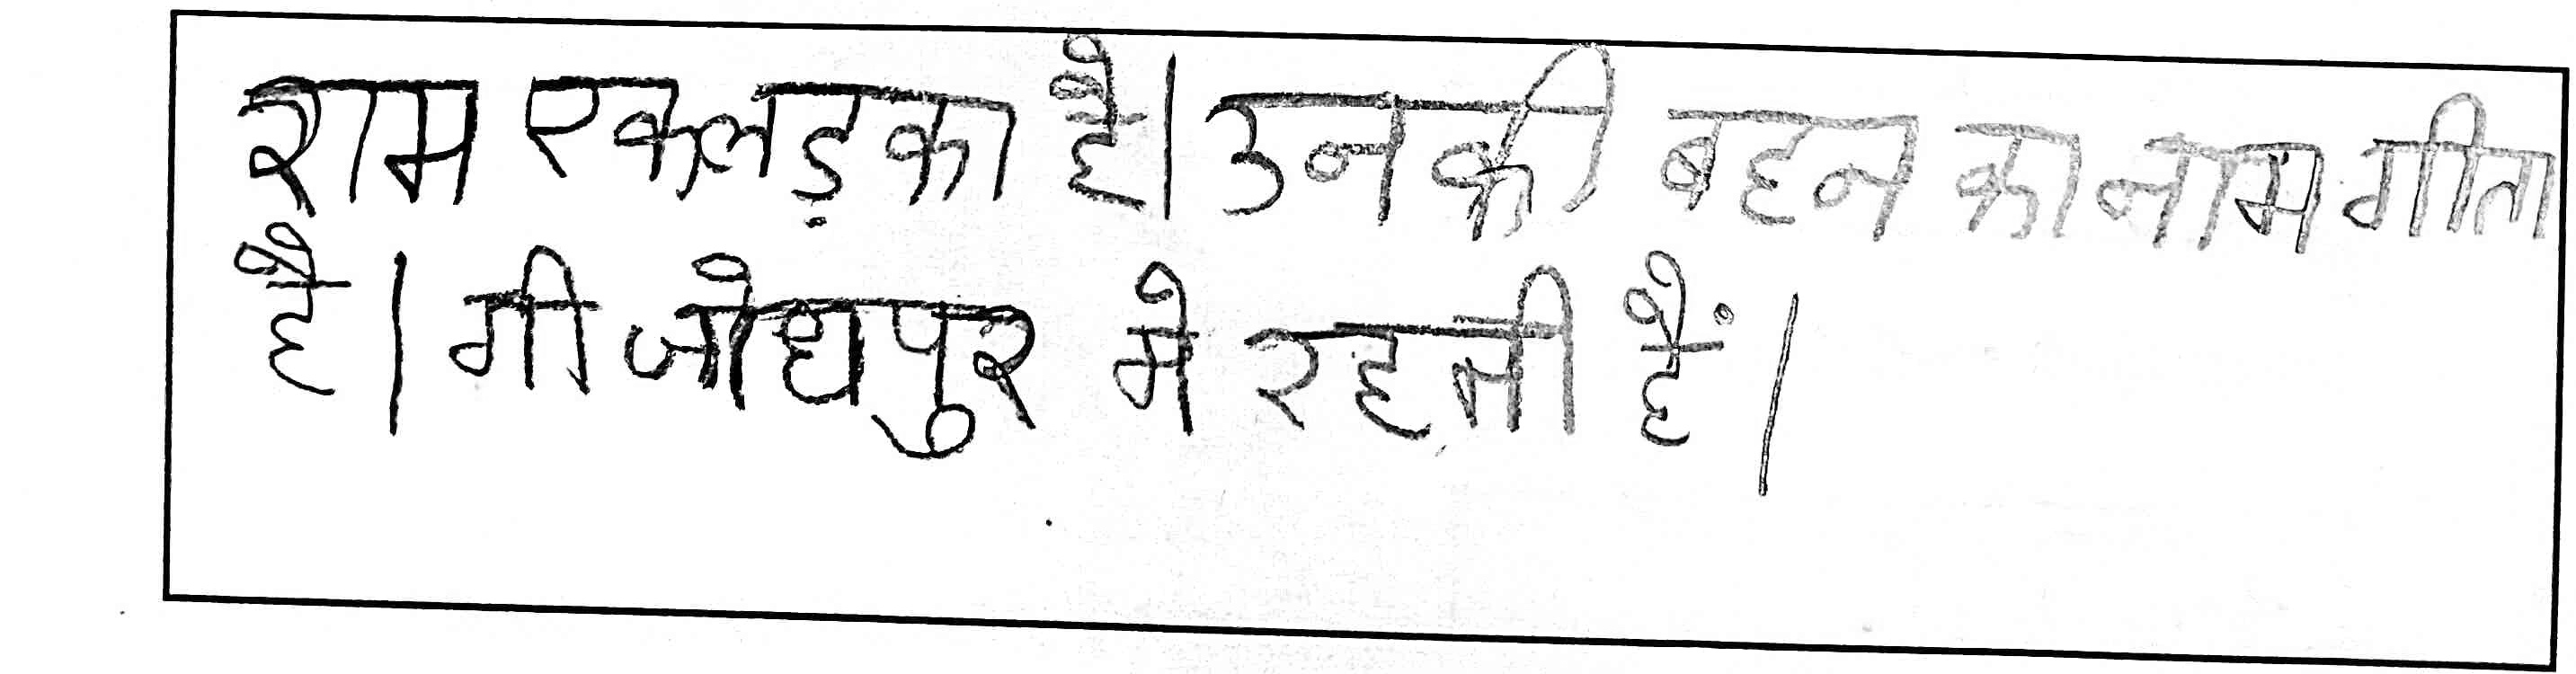 राम एक लड़का है। उनकी बहन का नाम गीता
है। गी जोधपुर मे रहती हैं।